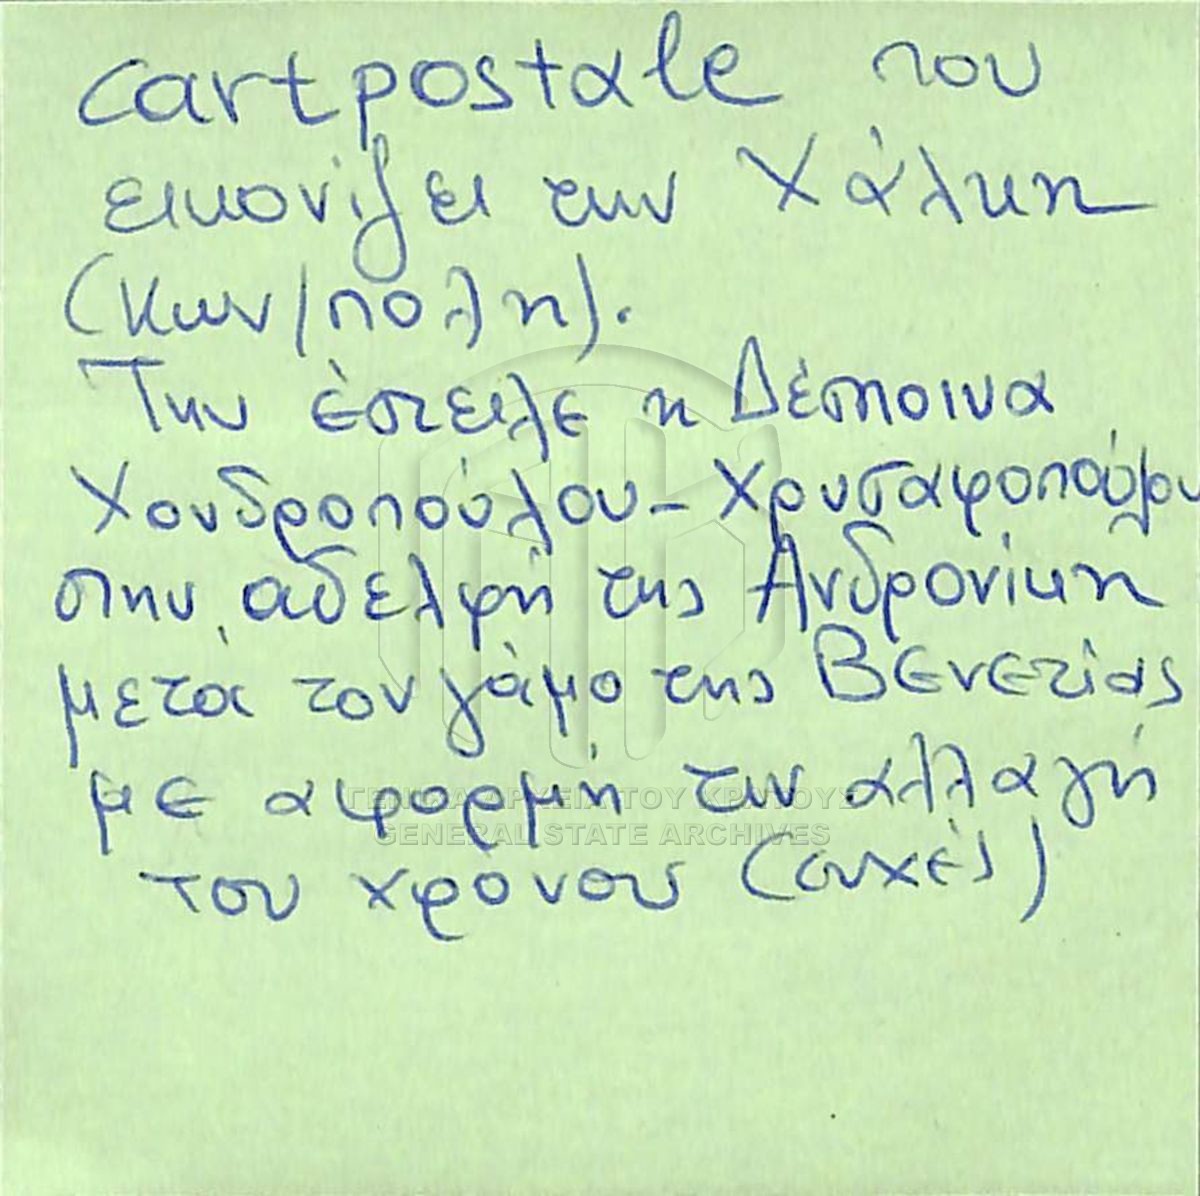 cartpostale που
εικονίζει την Χάλκη
(Κων/πολη).
Την έστειλε η Δέσποινα
Χονδροπούλου-Χρυσαφοπούλου
στην αδελφή της Ανδρονίκη
μετά τον γάμο της Βενετίας
με αφορμή την αλλαγή
του χρόνου (ευχές)
ΓΕΝΙΚΑ ΑΡΧΕΙΑ ΤΟΥ ΚΡΑΤΟΥΣ
GENERAL STATE ARCHIVES